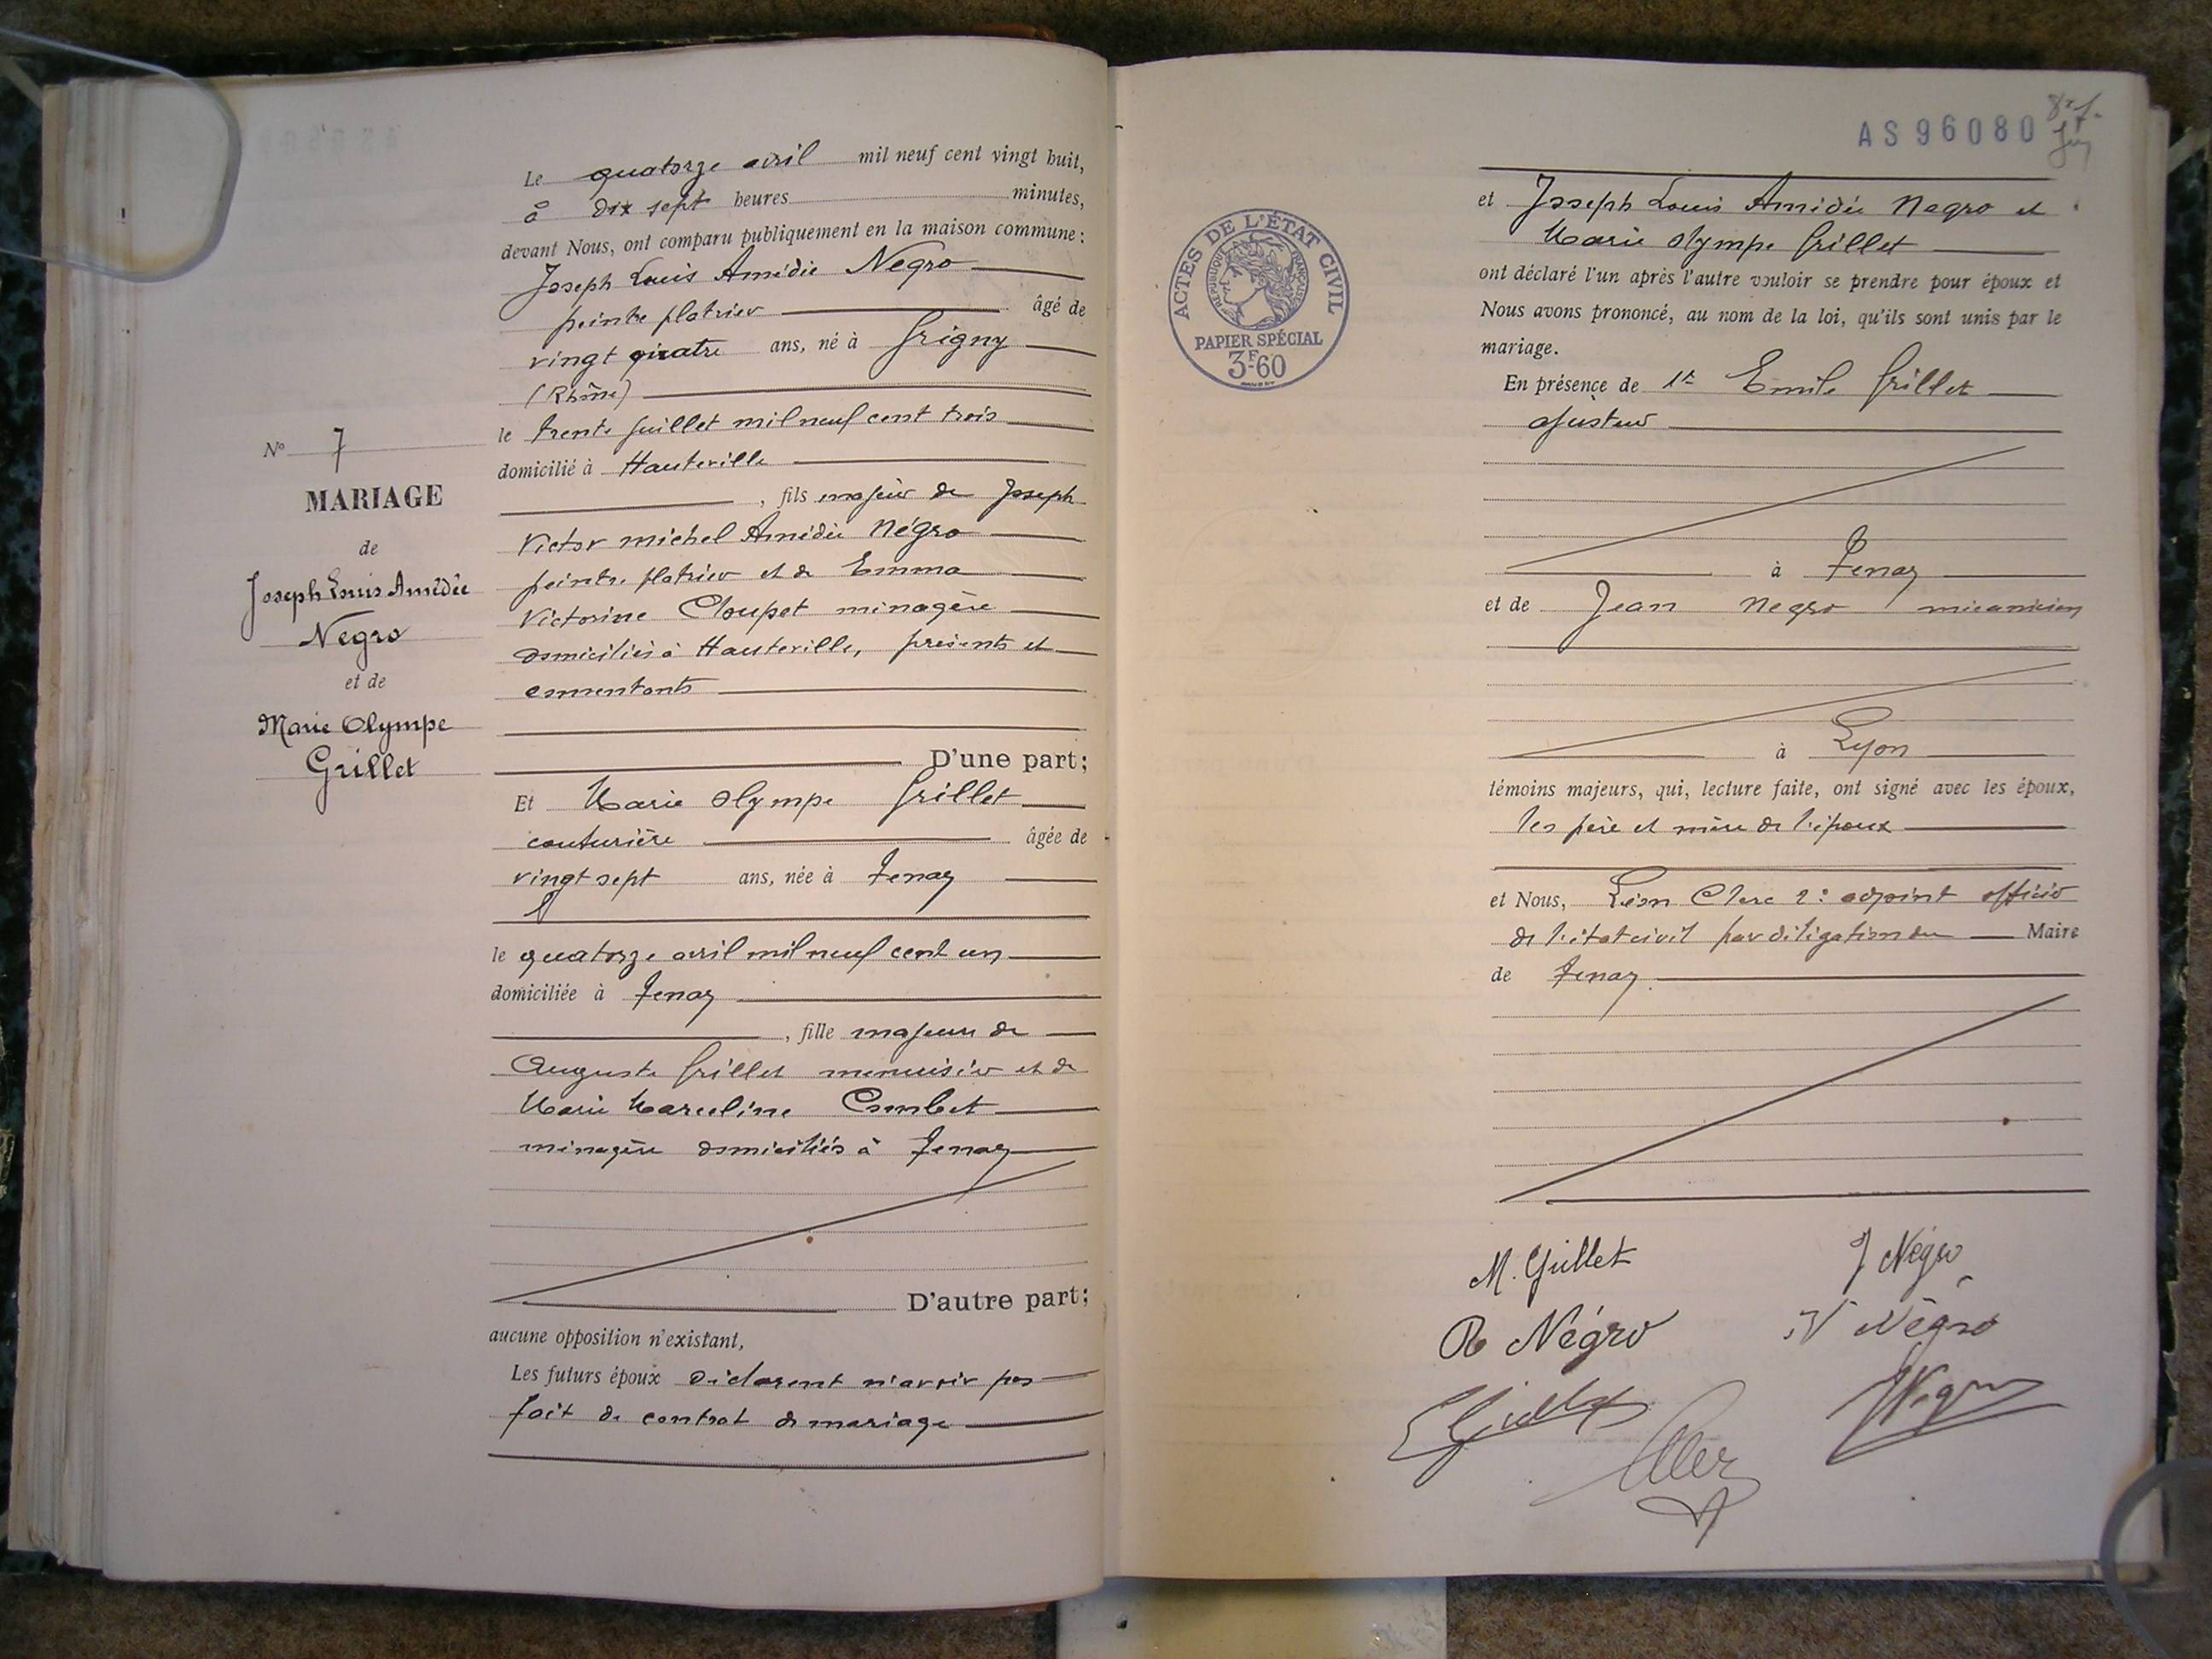 N° 7
MARIAGE
de
Joseph Louis Amédée
Negro
et de
Marie Olympe
Grillet
Le quatorze avril mil neuf cent vingt huit,
à dix sept heures minutes,
devant Nous, ont comparu publiquement en la maison commune :
Joseph Louis Amédée Negro
peintre platrier âgé de
vingt quatre ans, né à Grigny
(Rhône)
le trente juillet mil neuf cent trois
domicilié à Hauteville
, fils majeur de Joseph
Victor michel Amédée Négro
peintre platrier et de Emma
Victorine Cloupet ménagère
domiciliés à Hauteville, présents et
consentants
D'une part;
Et Marie Olympe Grillet
couturière âgée de
vingt sept ans, née à Tenay
le quatorze avril mil neuf cent un
domiciliée à Tenay
, fille majeure de
Auguste Grillet menuisier et de
Marie Marceline Combet
ménagère domiciliés à Tenay
D'autre part;
aucune opposition n'existant,
Les futurs époux déclarent n'avoir pas
fait de contrat de mariage
AS96080
ACTES DE L'ÉTAT CIVIL
RÉPUBLIQUE FRANÇAISE
PAPIER SPÉCIAL
3F60
et Joseph Louis Amédée Negro et
Marie Olympe Grillet
ont déclaré l'un après l'autre vouloir se prendre pour époux et
Nous avons prononcé, au nom de la loi, qu'ils sont unis par le
mariage.
En présence de 1° Emile Grillet
ajusteur
à Tenay
et de Jean Negro mécanicien
à Lyon
témoins majeurs, qui, lecture faite, ont signé avec les époux,
les père et mère de l'époux
et Nous, Léon Clerc 2e adjoint officier
de l'état civil par délégation du Maire
de Tenay
M. Grillet J Négro
Négro V Négro
E Grillet J Negro